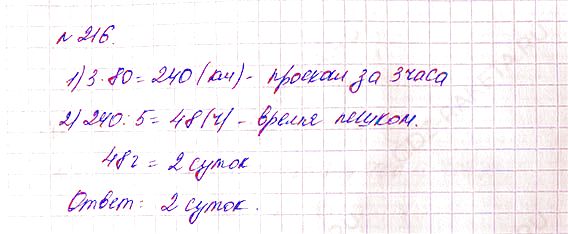 № 216.
1) 3·80 = 240 (км) - проехал за 3 часа
2) 240:5 = 48 (ч) - время пешком.
48 ч = 2 суток
Ответ: 2 суток.